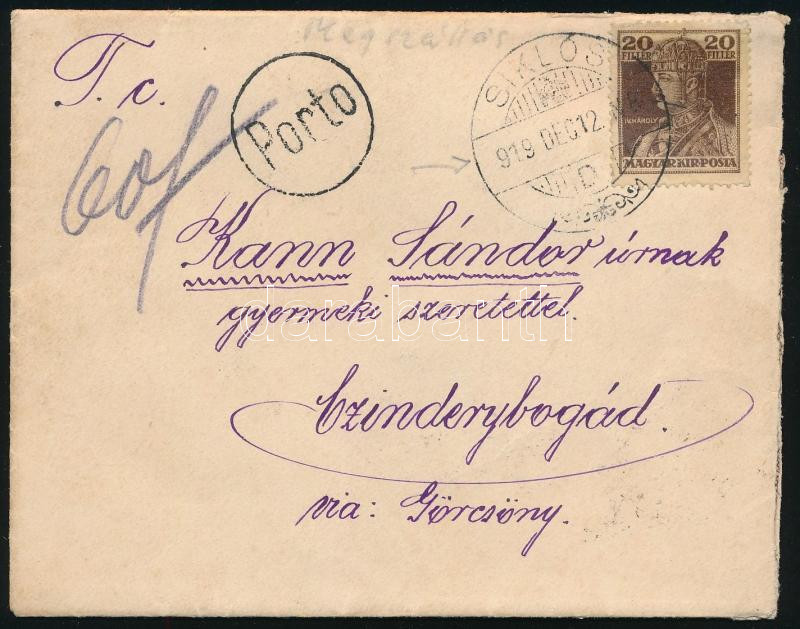 Megszállás
T. c.
60f
Porto
SIKLÓS
919 DEC 12.
D
20 20
FILLÉR FILLÉR
IV. KÁROLY
MAGYAR KIR. POSTA
Kann Sándor úrnak
gyermeki szeretettel.
Czinderybogád.
via: Görcsöny.
darabanth